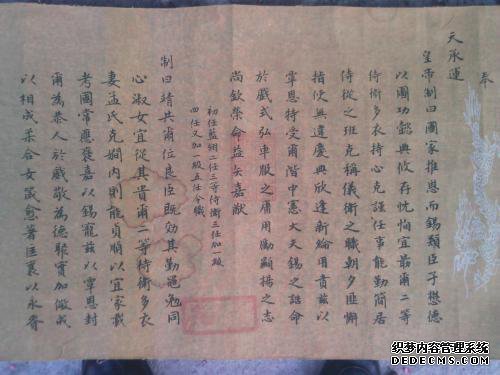 奉
天承運
皇帝制曰國家推恩而錫類臣子懋德
以圖功懿典攸存忱恂宜勗爾二等
侍衛多衣持心克謹任事能勤簡居
侍從之班克稱儀衛之職朝夕匪懈
指使無違慶典欣逢新綸用賁茲以
覃恩特受爾階中憲大夫錫之誥命
於戲式弘車服之庸用勵顯揚之志
尚欽榮命益矢嘉猷
初任藍翎二任三等侍衛三任加一級
四任又加一級五任今職
制曰靖共爾位良臣既效其勤黽勉同
心淑女宜從其貴爾二等侍衛多衣
妻孟氏克嫻內則能貞順以宜家載
考國常應褒嘉以錫寵茲以覃恩封
爾為恭人於戲敬為德聚實加儆戒
以相成柔合女箴愈著匡襄以永眷
织梦内容管理系统
DEDECMS.COM